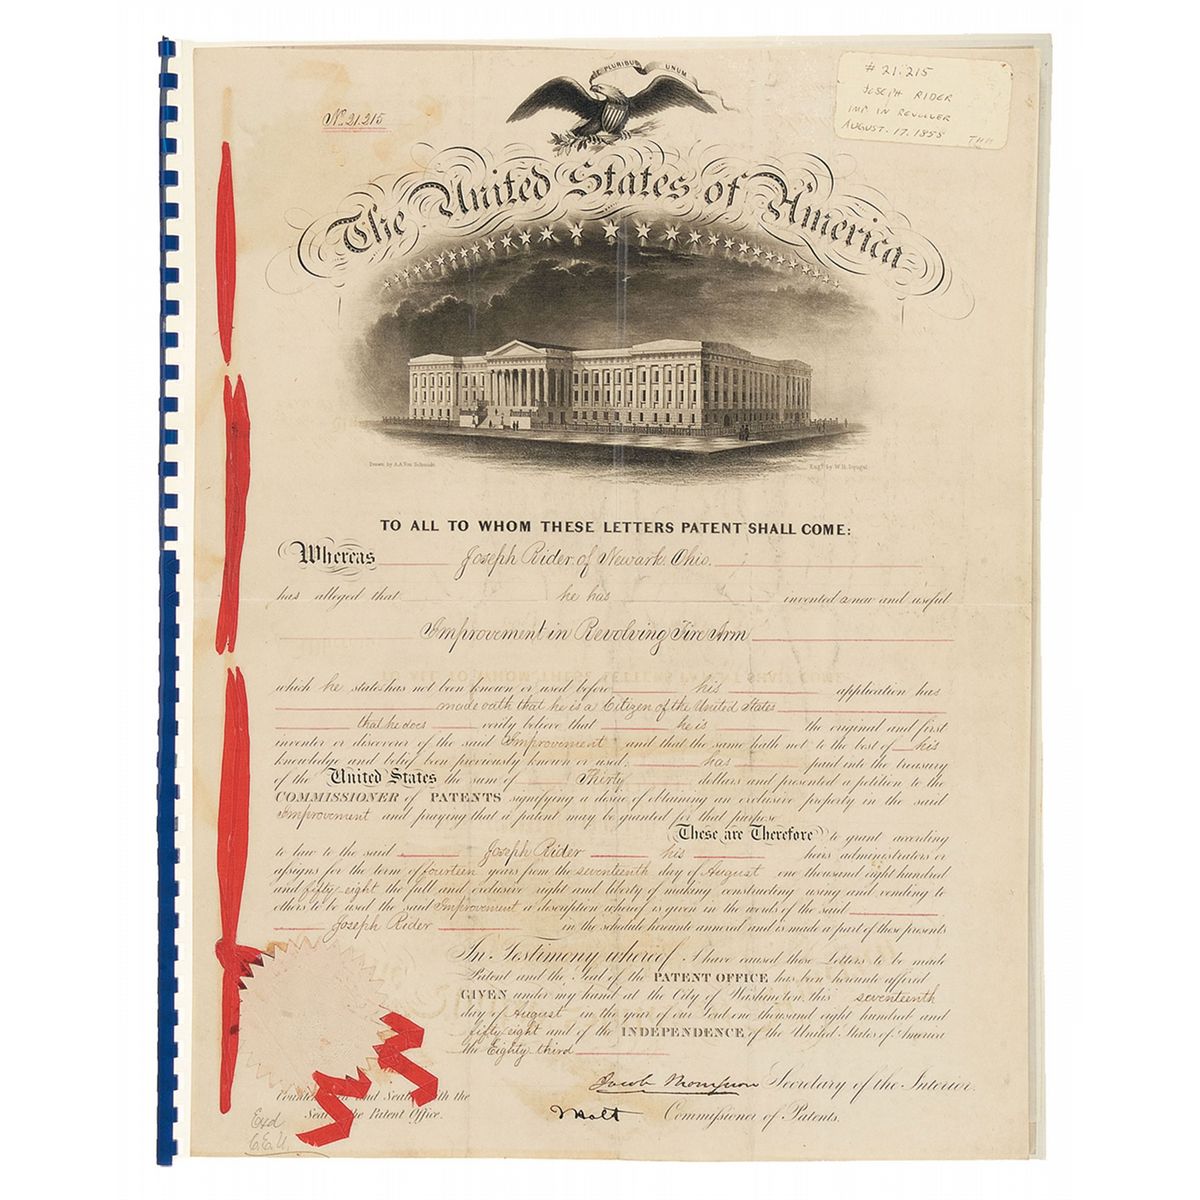 E PLURIBUS UNUM
No. 21.215
# 21.215
JOSEPH RIDER
IMP IN REVOLVER
AUGUST. 17. 1858
The United States of America
Drawn by A.A. Von Schmidt
Engd. by W.H. Dougal
TO ALL TO WHOM THESE LETTERS PATENT SHALL COME:
Whereas Joseph Rider of Newark Ohio.
has alleged that he has invented a new and useful
Improvement in Revolving Fire Arm
which he states has not been known or used before his application has
made oath that he is a Citizen of the United States
that he does verily believe that he is the original and first
inventor or discoverer of the said Improvement and that the same hath not to the best of his
knowledge and belief been previously known or used: has paid into the treasury
of the United States the sum of Thirty dollars and presented a petition to the
COMMISSIONER of PATENTS signifying a desire of obtaining an exclusive property in the said
Improvement and praying that a patent may be granted for that purpose
These are Therefore to grant according
to law to the said Joseph Rider his heirs administrators or
assigns for the term of fourteen years from the seventeenth day of August one thousand eight hundred
and fifty eight the full and exclusive right and liberty of making constructing using and vending to
others to be used the said Improvement a description whereof is given in the words of the said
Joseph Rider in the schedule hereunto annexed and is made a part of these presents
In Testimony whereof I have caused these Letters to be made
Patent and the Seal of the PATENT OFFICE has been hereunto affixed
GIVEN under my hand at the City of Washington this seventeenth
day of August in the year of our Lord one thousand eight hundred and
fifty eight and of the INDEPENDENCE of the United States of America
the Eighty third
Jacob Thompson Secretary of the Interior.
and Sealed with the
Seal of the Patent Office.
Holt Commissioner of Patents.
Exd